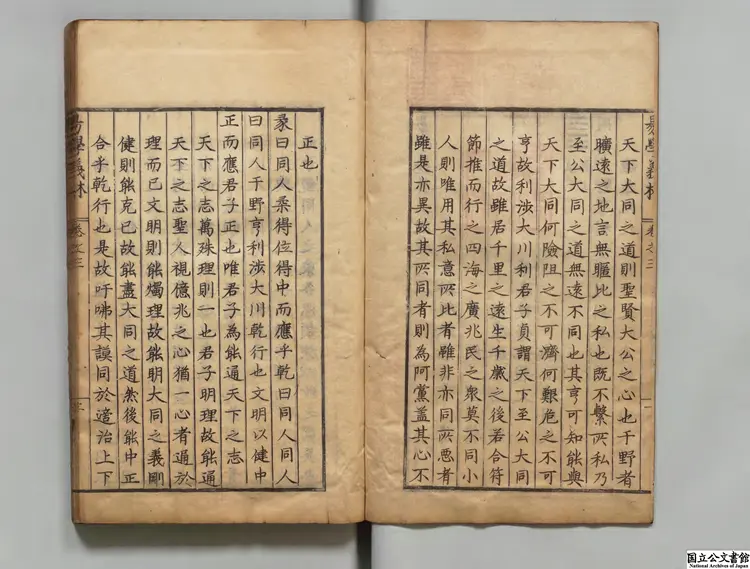 易學義林 卷之三 一
天下大同之道則聖賢大公之心也于野者
曠遠之地言無暱比之私也既不繫所私乃
至公大同之道無遠不同也其亨可知能與
天下大同何險阻之不可濟何艱危之不可
亨故利涉大川利君子貞謂天下至公大同
之道故雖居千里之遠生千歲之後若合符
節推而行之四海之廣兆民之衆莫不同小
人則唯用其私意所比者雖非亦同所惡者
雖是亦異故其所同者則為阿黨盖其心不
正也
彖曰同人柔得位得中而應乎乾曰同人同人
曰同人于野亨利涉大川乾行也文明以健中
正而應君子正也唯君子為能通天下之志
天下之志萬殊理則一也君子明理故能通
天下之志聖人視億兆之心猶一心者通於
理而已文明則能燭理故能明大同之義剛
健則能克己故能盡大同之道然後能中正
合乎乾行也是故吁咈其謨同於治上下
易學義林 卷之三
国立公文書館
National Archives of Japan